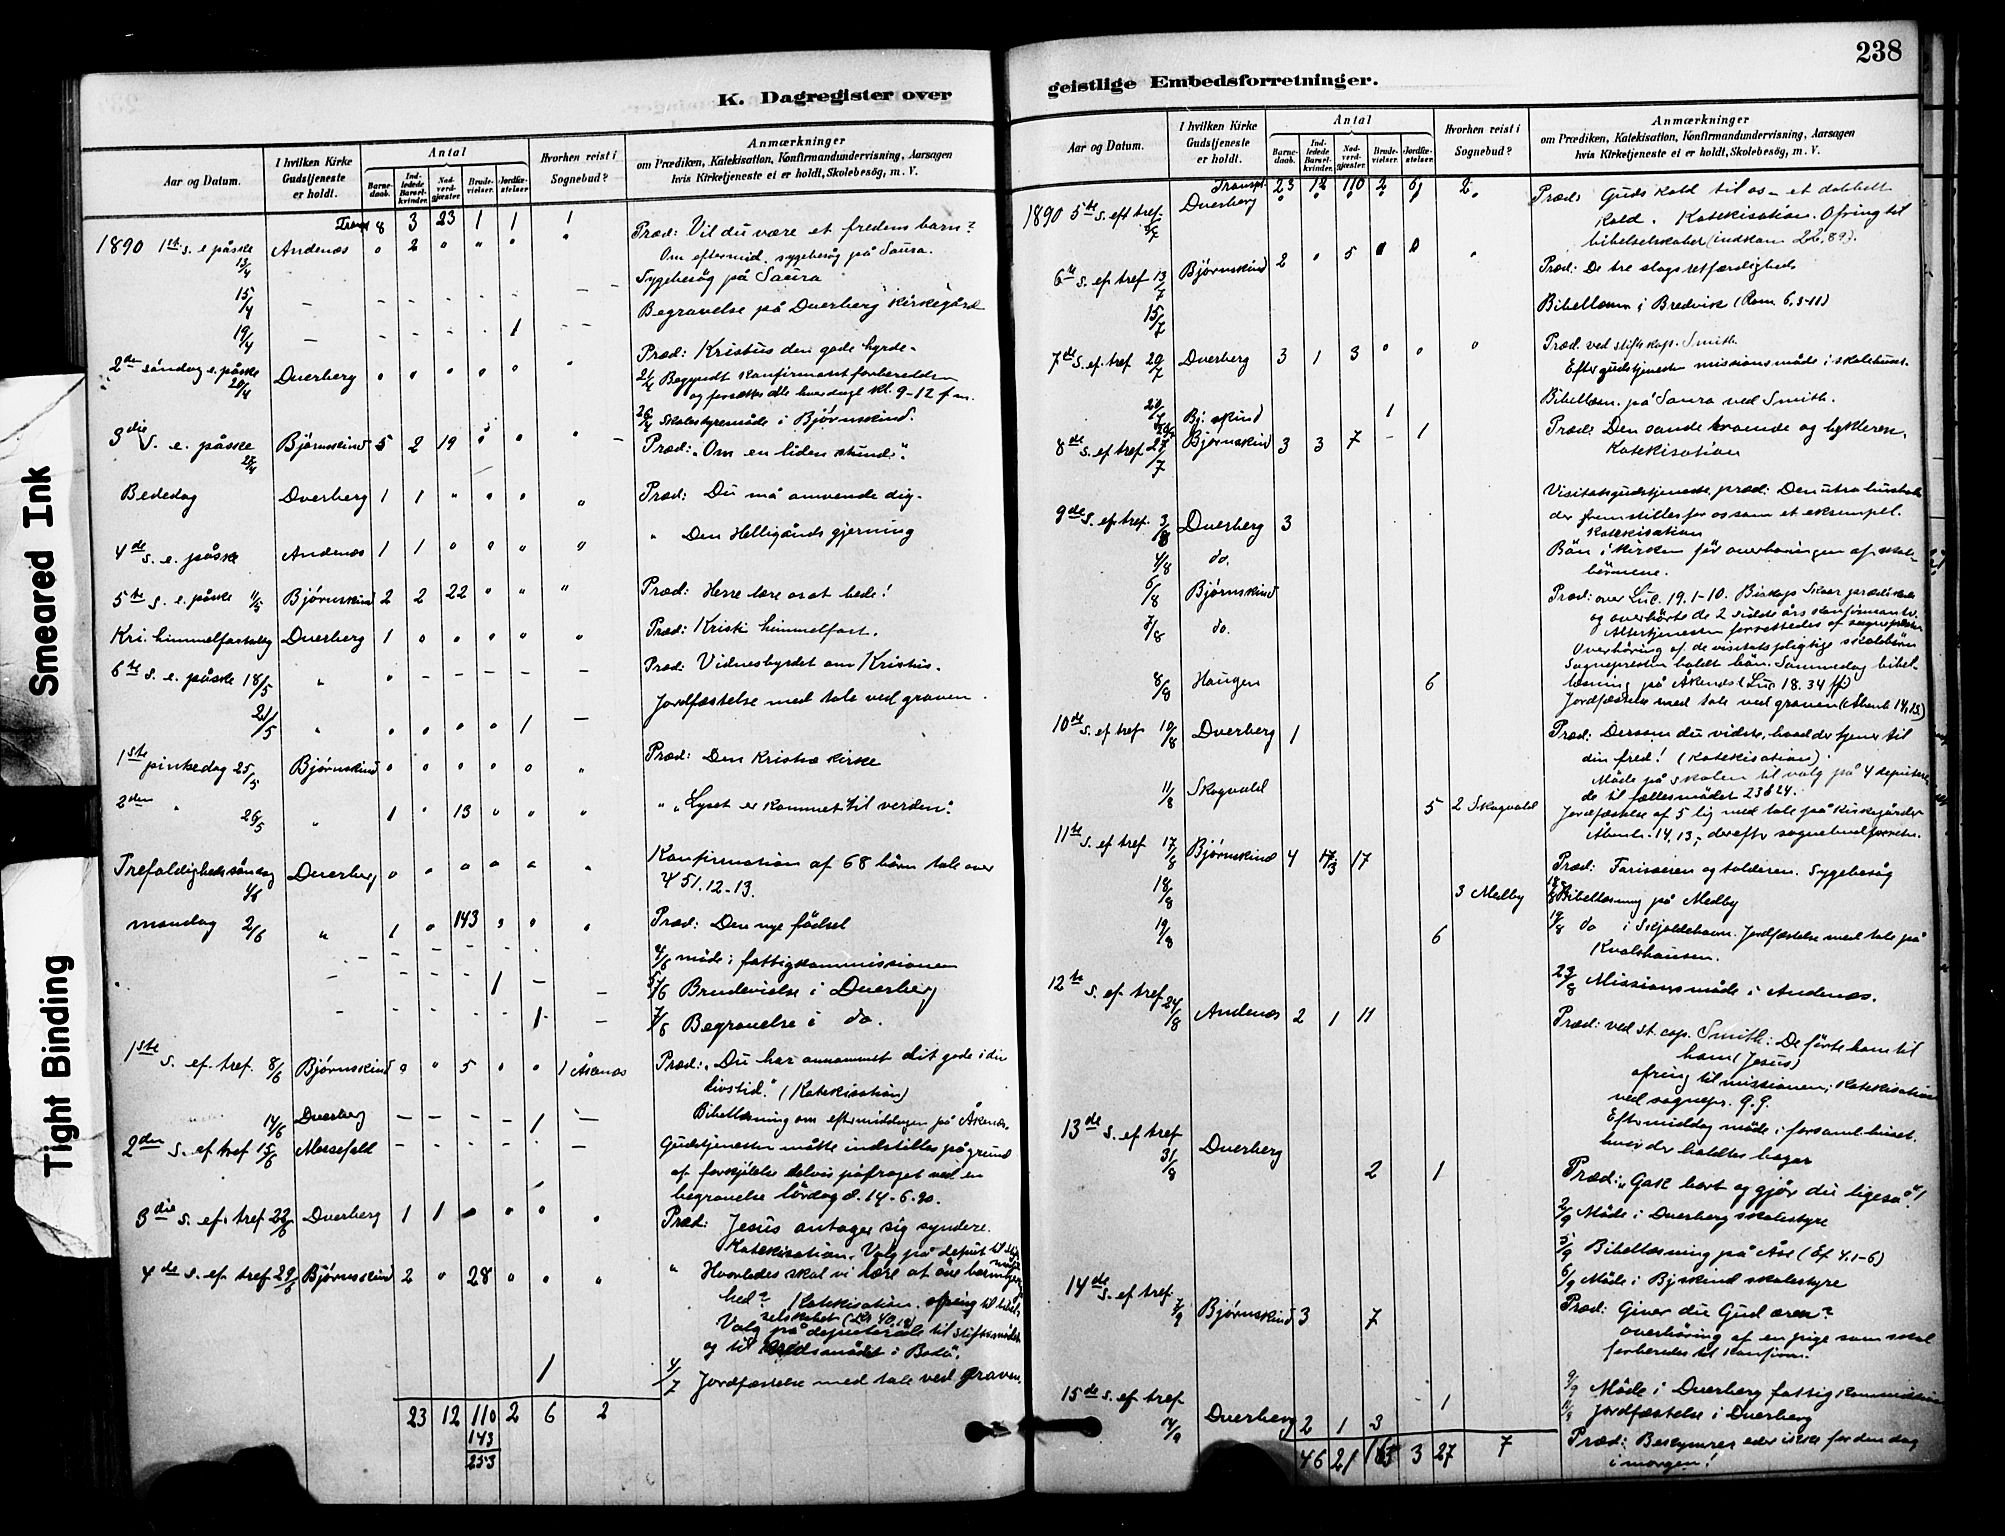 238
K. Dagregister over
geistlige Embedsforretninger.
Smeared Ink
Tight Binding
Aar og Datum.
I hvilken Kirke Gudstjeneste er holdt.
Antal
Barnedaab.
Indledede Barselkvinder.
Nadverdgjester.
Brudevielser.
Jordfæstelser
Hvorhen reist i Sognebud?
Anmærkninger
om Prædiken, Katekisation, Konfirmandundervisning, Aarsagen
hvis Kirketjeneste ei er holdt, Skolebesøg, m. V.
Transp 8 3 23 1 1 1
1890 1ste s. e. påske 13/4 Andenæs " 2 " " " " Præd: Vil du være et fredens barn?
Om eftermid. sygebesøg på Saura.
15/4 Sygebesøg på Saura
19/4 1 Begravelse på Dverberg kirkegård
2den søndag e. påske 20/4 Dverberg " " " " " " Præd: Kristus den gode hyrde.
21/4 Begyndt konfirmantforberedelsen
og fortsættes alle hverdage kl. 9-12 f.m.
26/4 Skolestyremøde i Bjørnskind.
3die S. e. påske 27/4 Bjørnskind 5 2 19 " " Præd: "Om en liden stund".
Bededag Dverberg 1 1 " " " " Præd: Du må omvende dig.
4de s. e. påske Andenæs 1 1 " " " " " Den Helligånds gjerning
5te s. e. påske 11/5 Bjørnskind 2 2 22 " " " Præd: Herre lære os at bede!
Kri. himmelfartsdag Dverberg 1 " " " " " Præd: Kristi himmelfart.
6te s. e. påske 18/5 " " Præd: Vidnesbyrdet om Kristus.
21/5 " " " " " 1 Jordfæstelse med tale ved graven.
1ste pinsedag 25/5 Bjørnskind " " " " " " Præd: Den kristne kirke
2den " 26/5 " 1 " 13 " " " " "Lyset er kommet til verden".
Trefoldighedssøndag 1/6 Dverberg " " " " " Konfirmation af 68 børn tale over
ψ 51.12-13.
mandag 2/6 " 1 " 143 " " " Præd: Den nye fødsel
4/6 møde i fattigkommissionen
1 5/6 Brudevielse i Dverberg
1 7/6 Begravelse i do.
1ste s. ef. tref. 8/6 Bjørnskind " " 5 " " 1 Åkenæs Præd: "Du har annammet dit gode i din
livstid." (Katekisation)
Bibellæsning om eftermiddagen på Åkenæs.
14/6 Dverberg 1
2den s. ef. tref 15/6 Gudstjenesten måtte indstilles på grund
af forkjølelse delvis pådraget ved en
begravelse lørdag d. 14-6-90.
3die s. ef. tref 22/6 Dverberg 1 1 " " " " Præd: Jesus antager sig syndere.
Katekisation. Valg på deput til
4de s. ef. tref 29/6 Bjørnskind 2 " 28 " " " " Hvorledes skal vi lære at øve barmhjertig
hed? Katekisation. ofring til bibel
selskabet
Valg på deputerede til stiftsmødet
og til i Bodø.
1 4/7 Jordfæstelse med tale ved graven.
23 12 110 2 6 2
143
253
Aar og Datum.
I hvilken Kirke Gudstjeneste er holdt.
Antal
Barnedaab.
Indledede Barselkvinder.
Nadverdgjester.
Brudevielser.
Jordfæstelser.
Hvorhen reist i Sognebud?
Anmærkninger
om Prædiken, Katekisation, Konfirmandundervisning, Aarsagen
hvis Kirketjeneste ei er holdt, Skolebesøg, m. V.
Transp. 23 12 110 2 6 2
1890 5te s. eft tref. 6/7 Dverberg " " " " 1 " Præd: Guds kald til os - et dobbelt
kald. Katekisation. Ofring til
bibelselskabet (indkom 22,89).
6te s. ef tref 13/7 Bjørnskind 2 " 5 " " " Præd: De tre slags retfærdigheds
15/7 Bibellæsn. i Bredvik (Rom 6,3-11)
7de s. ef. tref 20/7 Dverberg 3 1 3 " " " Præd. ved stiftskap. Smith.
Efter gudstjenesten missionsmøde i skolehuset.
Bj. skind 1 Bibellæsn. på Saura ved Smith.
8de s. ef tref 27/7 Bjørnskind 3 3 7 - 1 Præd: Den sande troende og hykleren.
Katekisation
9de s. ef tref. 3/8 Dverberg 3 Visitatsgudstjeneste præd: Den utro hushol
der fremstilles for os som et eksempel.
Katekisation
4/8 do. Bøn i kirken før overhøringen af skole-
børnene.
6/8 Bjørnskind Præd: over Luc. 19.1-10. Biskop Skaar prædikede
og overhørte de 2 sidste års konfirmanter
Altertjenesten forrettedes af sognepresten
7/8 do. Overhøring af de visitatspligtige skolebørn
Sognepresten holdt bøn. Samme dag bibel-
læsning på Åkenæs (Luc 18.34 ff)
8/8 Haugen 6 Jordfæstelse med tale ved graven (Åbenb 14,13)
10de s. ef tref 10/8 Dverberg 1 Præd: Dersom du vidste, hvad der tjener til
din fred! (Katekisation)
Møde på skolen til valg på 4 deputere
de til fællesmødet 23 & 24.
11/8 Skogvold 5 2 Skogvold Jordfæstelse af 5 lig med tale på kirkegården
Åbenb. 14,13, derefter sognebud
11te s. ef tref 17/8 Bjørnskind 4 3 17 Præd: Farisæeren og tolderen. Sygebesøg
18/8 3 Medby 18/8 Bibellæsning på Medby
19/8 6 19/8 do i Skjoldehavn. Jordfæstelse med tale på
Kvalshausen.
23/8 Missionsmøde i Andenæs.
12te s. ef. tref 24/8 Andenæs 2 1 11 Præd: ved st. cap. Smith: De førte ham til
ham (Jesus)
ofring til missionen, katekisation
ved sognepr. G.G.
Eftermiddag møde i forsaml.huset.
hvor der holdtes bøger
13de s. ef tref 31/8 Dverberg 2 1 Præd: "Gak bort og gjør du ligeså"!
2/9 Møde i Dverberg skolestyre
5/9 Bibellæsning på Åse (Ef 4.1-6)
6/9 Møde i Bj.skind skolestyre
14de s. ef tref. 7/9 Bjørnskind 3 7 Præd: Giver du Gud æren?
overhøring af en pige som skal
forberedes til konfirm.
9/9 Møde i Dverberg fattigkommission
1 11/9 Jordfæstelse i Dverberg
15de s. ef tref 14/9 Dverberg 2 1 3 Præd: Bekymrer eder ikke for den dag
i morgen!
46 21 163 3 27 7